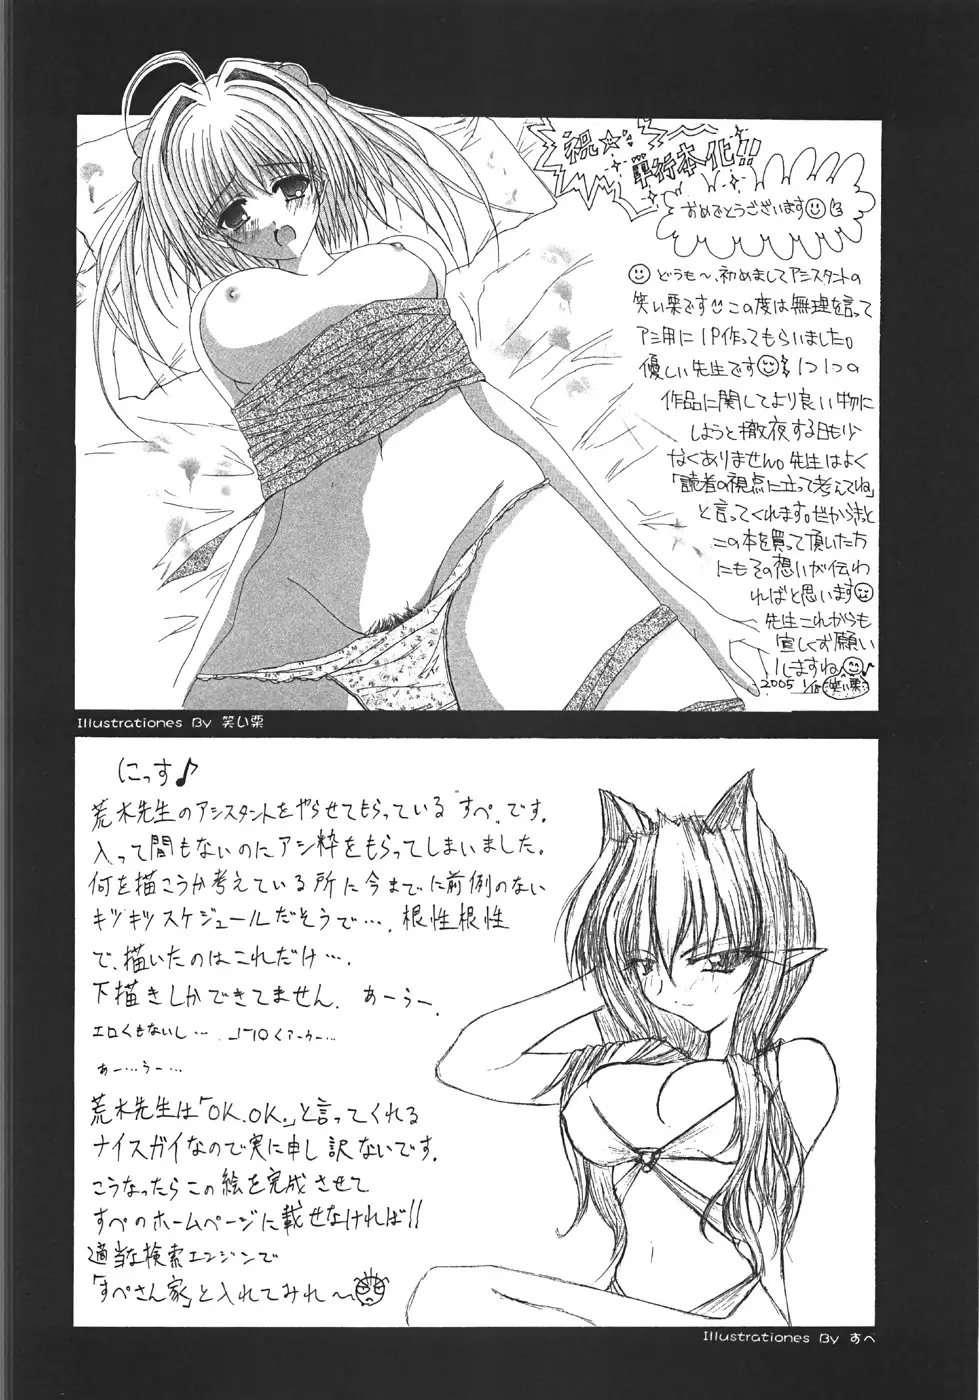 祝☆
単行本化!!
おめでとうございます
どうも〜、初めましてアシスタントの
笑い栗です この度は無理を言って
アシ用に1P作ってもらいました。
優しい先生です 1つ1つの
作品に関してより良い物に
しようと徹夜する日も少
なくありません。先生はよく
「読者の視点に立って考えてね」
と言ってくれます。だからきっと
この本を買って頂いた方
にもその想いが伝わ
ればと思います
先生これからも
宜しくお願い
しますね♪
2005 1/18 笑い栗
Illustrationes By 笑い栗
にっす♪
荒木先生のアシスタントをやらせてもらっている"すぺ"です.
入って間もないのにアシ枠をもらってしまいました.
何を描こうか考えている所に今までに前例のない
キツキツスケジュールだそうで…. 根性根性
で、描いたのはこれだけ….
下描きしかできてません. あーぅー.
エロくもないし…
ぁー…ぅー…
荒木先生は「OK.OK.」と言ってくれる
ナイスガイなので実に申し訳ないです.
こうなったらこの絵を完成させて
すぺのホームページに載せなければ!!
適当な検索エンジンで
「すぺさん家」と入れてみれ〜
Illustrationes By すぺ